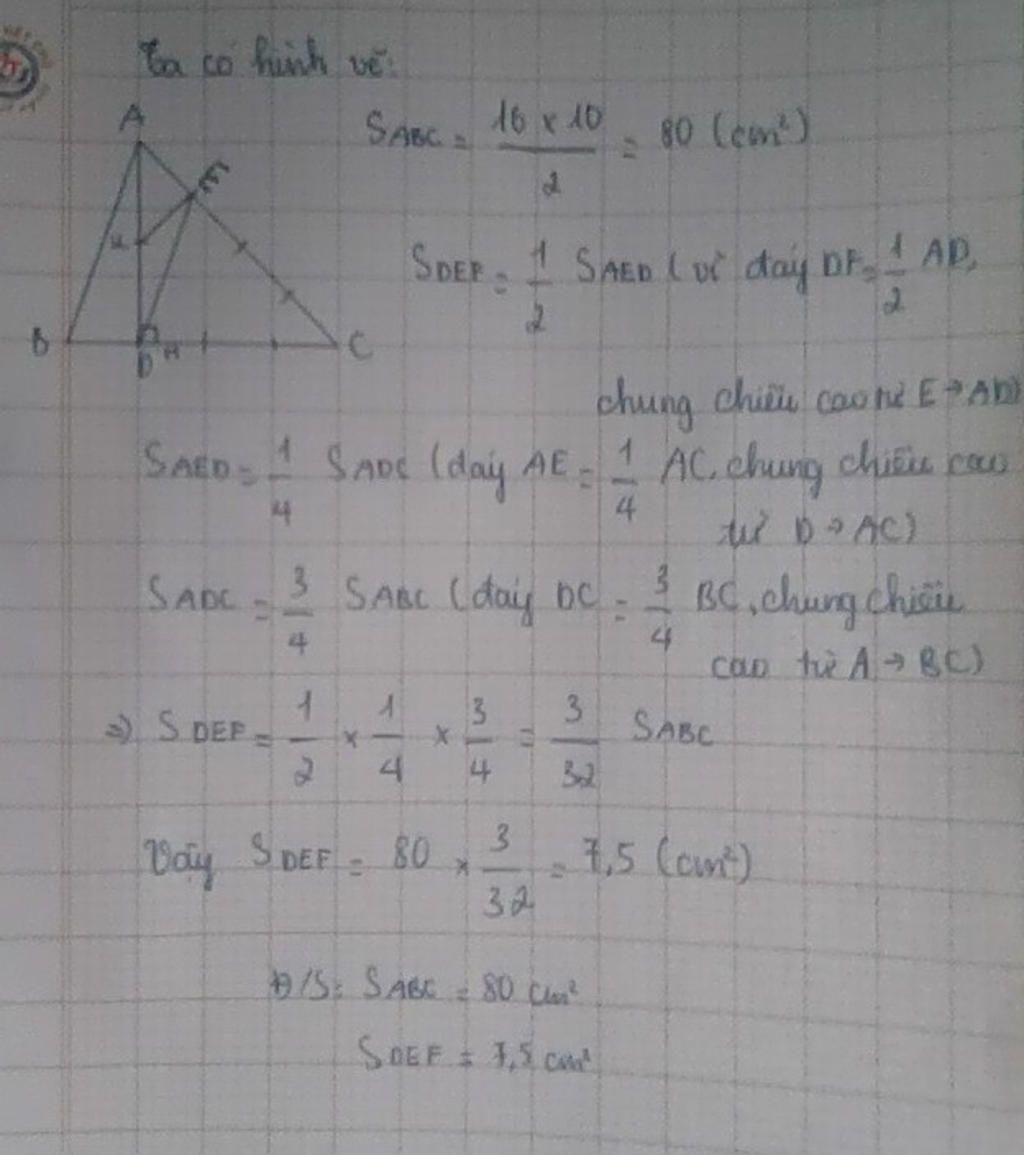 Ta có hình vẽ:
A
E
B
D
H
C
S ABC = 16 x 10 / 2 = 80 (cm²)
S DEF = 1/2 S AED (vì đáy DF = 1/2 AD,
chung chiều cao từ E → AD)
S AED = 1/4 S ADC (đáy AE = 1/4 AC, chung chiều cao
từ D → AC)
S ADC = 3/4 S ABC (đáy DC = 3/4 BC, chung chiều
cao từ A → BC)
=> S DEF = 1/2 x 1/4 x 3/4 = 3/32 S ABC
Vậy S DEF = 80 x 3/32 = 7,5 (cm²)
Đ/S: S ABC = 80 cm²
S DEF = 7,5 cm²